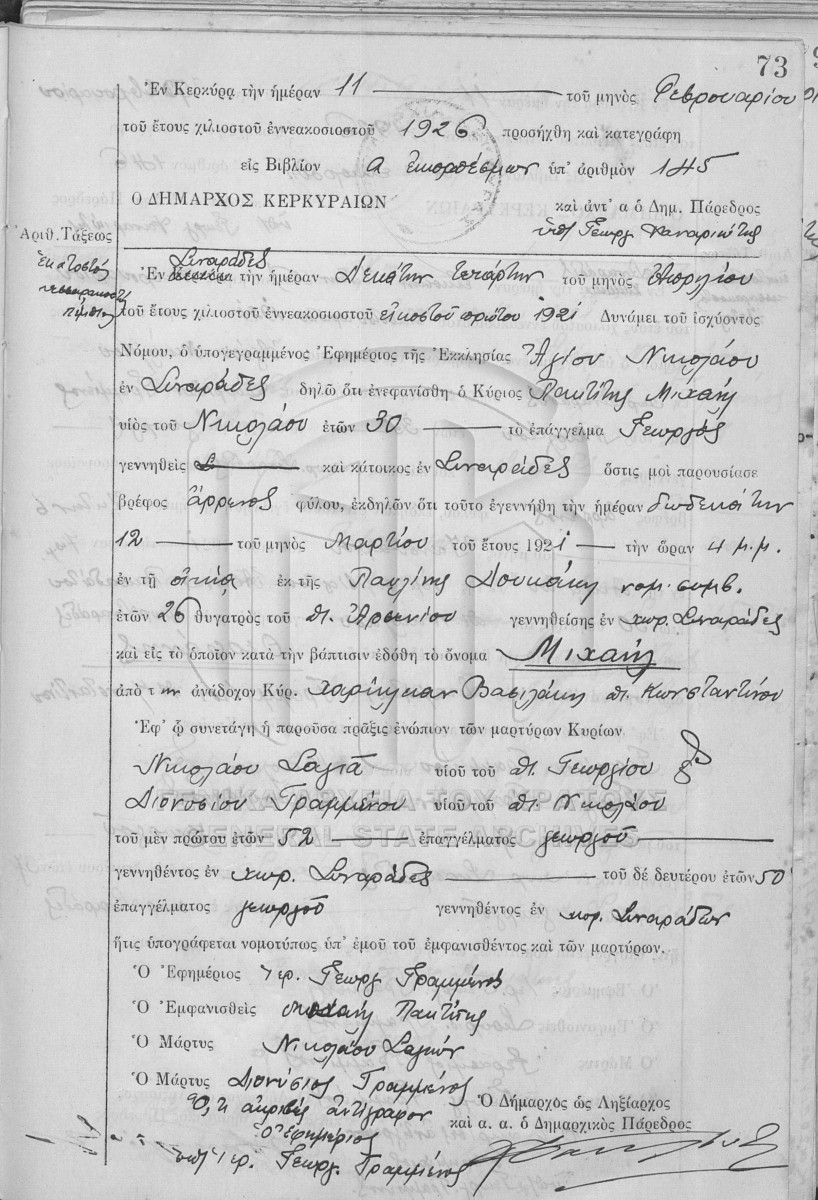 73
Ἐν Κερκύρᾳ τὴν ἡμέραν 11 τοῦ μηνὸς Φεβρουαρίου
τοῦ ἔτους χιλιοστοῦ ἐννεακοσιοστοῦ 1926 προσήχθη καὶ κατεγράφη
εἰς Βιβλίον α ἐκπροθέσμων ὑπ' ἀριθμὸν 145
Ο ΔΗΜΑΡΧΟΣ ΚΕΡΚΥΡΑΙΩΝ
καὶ ἀντ' α ὁ Δημ. Πάρεδρος
Γεωργ.
Ἀριθ. Τάξεως
Ἑκατοστὸς
τεσσαρακοστὸς
πέμπτος
Σιναράδες
Ἐν Κερκύρᾳ τὴν ἡμέραν Δεκάτην τετάρτην τοῦ μηνὸς Ἀπριλίου
τοῦ ἔτους χιλιοστοῦ ἐννεακοσιοστοῦ εἰκοστοῦ πρώτου 1921 Δυνάμει τοῦ ἰσχύοντος
Νόμου, ὁ ὑπογεγραμμένος Ἐφημέριος τῆς Ἐκκλησίας Ἁγίου Νικολάου
ἐν Σιναράδες δηλῶ ὅτι ἐνεφανίσθη ὁ Κύριος Πακτίτης Μιχαὴλ
υἱὸς τοῦ Νικολάου ἐτῶν 30 τὸ ἐπάγγελμα Γεωργός
γεννηθεὶς καὶ κάτοικος ἐν Σιναράδες ὅστις μοὶ παρουσίασε
βρέφος ἄρρενος φύλου, ἐκδηλῶν ὅτι τοῦτο ἐγεννήθη τὴν ἡμέραν δωδεκάτην
12 τοῦ μηνὸς Μαρτίου τοῦ ἔτους 1921 τὴν ὥραν 4 μ.μ.
ἐν τῇ οἰκίᾳ ἐκ τῆς Παυλίνης Δουκάκη νομ. συμβ.
ἐτῶν 26 θυγατρὸς τοῦ π. Ἀρσενίου γεννηθείσης ἐν χωρ. Σιναράδες
καὶ εἰς τὸ ὁποῖον κατὰ τὴν βάπτισιν ἐδόθη τὸ ὄνομα Μιχαὴλ
ἀπὸ την ἀνάδοχον Κύρ. Χαρίκλειαν Βασιλάκη π. Κωνσταντίνου
Ἐφ' ᾧ συνετάγη ἡ παροῦσα πρᾶξις ἐνώπιον τῶν μαρτύρων Κυρίων
Νικολάου Σαγιᾶ υἱοῦ τοῦ π. Γεωργίου
Διονυσίου Γραμμένου υἱοῦ τοῦ π. Νικολάου
ΓΕΝΙΚΑ ΑΡΧΕΙΑ ΤΟΥ ΚΡΑΤΟΥΣ
GENERAL STATE ARCHIVES
τοῦ μὲν πρώτου ἐτῶν 52 ἐπαγγέλματος γεωργοῦ
γεννηθέντος ἐν χωρ. Σιναράδες τοῦ δέ δευτέρου ἐτῶν 50
ἐπαγγέλματος γεωργοῦ γεννηθέντος ἐν χωρ. Σιναράδων
ἥτις ὑπογράφεται νομοτύπως ὑπ' ἐμοῦ τοῦ ἐμφανισθέντος καὶ τῶν μαρτύρων.
Ὁ Ἐφημέριος Ἱερ. Γεωργ. Γραμμένος
Ὁ Ἐμφανισθεὶς Μιχαὴλ Πακτίτης
Ὁ Μάρτυς Νικολάου Σαγιᾶν
Ὁ Μάρτυς Διονύσιος Γραμμένος
Ὅτι ἀκριβὲς ἀντίγραφον
Ὁ Ἐφημέριος
Ἱερ. Γεωργ. Γραμμένος
Ὁ Δήμαρχος ὡς Ληξίαρχος
καὶ α. α. ὁ Δημαρχικὸς Πάρεδρος